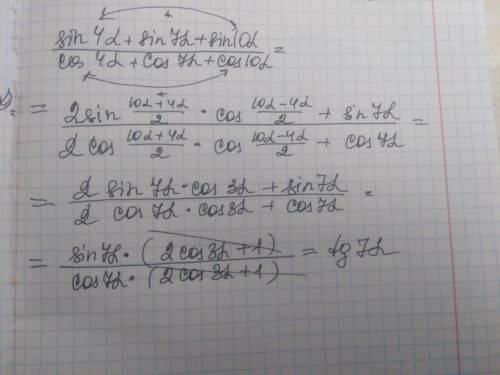 +
sin 4α + sin 7α + sin 10α
cos 4α + cos 7α + cos 10α =
= 2 sin (10α + 4α)/2 · cos (10α - 4α)/2 + sin 7α
2 cos (10α + 4α)/2 · cos (10α - 4α)/2 + cos 7α =
= 2 sin 7α · cos 3α + sin 7α
2 cos 7α · cos 3α + cos 7α =
= sin 7α · (2 cos 3α + 1)
cos 7α · (2 cos 3α + 1) = tg 7α